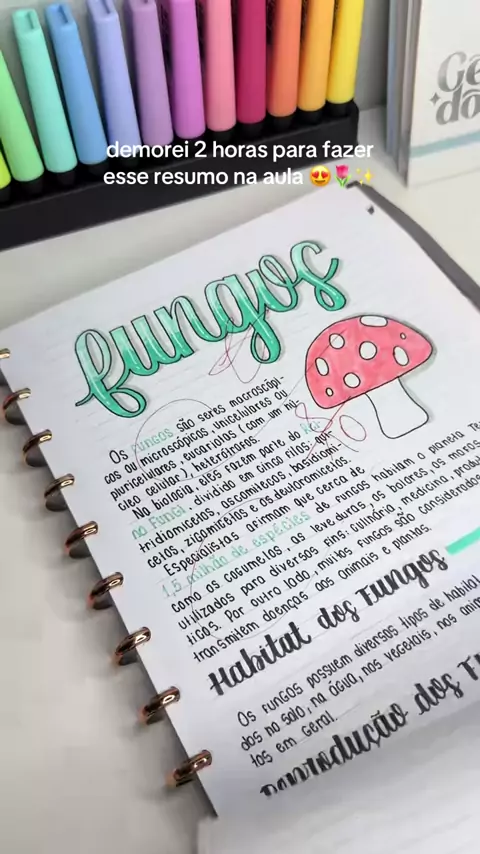 demorei 2 horas para fazer
esse resumo na aula 😍🌷✨
fungos
Os fungos são seres macroscópi-
cos ou microscópicos, unicelulares ou
pluricelulares, eucariotas (com um nú-
cleo celular), heterótrofos.
Na biologia, eles fazem parte do Rei-
no Fungi, dividido em cinco filos: qui-
tridiomicetos, ascomicetos, basidiomi-
cetos, zigomicetos e os deuteromicetos.
Especialistas afirmam que cerca de
1,5 milhão de espécies de fungos habitam o planeta Te
como os cogumelos, as leveduras, os bolores, os mofos,
utilizados para diversos fins: culinária, medicina, produ
ticos. Por outro lado, muitos fungos são considerados
transmitem doenças aos animais e plantas.
Habitat dos Fungos
Os fungos possuem diversos tipos de habitat
dos no solo, na água, nos vegetais, nos anim
tos em geral.
Reprodução dos